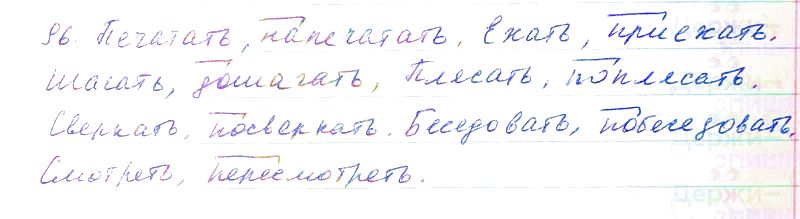 96. Печатать, напечатать. Ехать, приехать.
Шагать, дошагать, Плясать, поплясать.
Сверкать, посверкать. Беседовать, побеседовать.
Смотреть, пересмотреть.